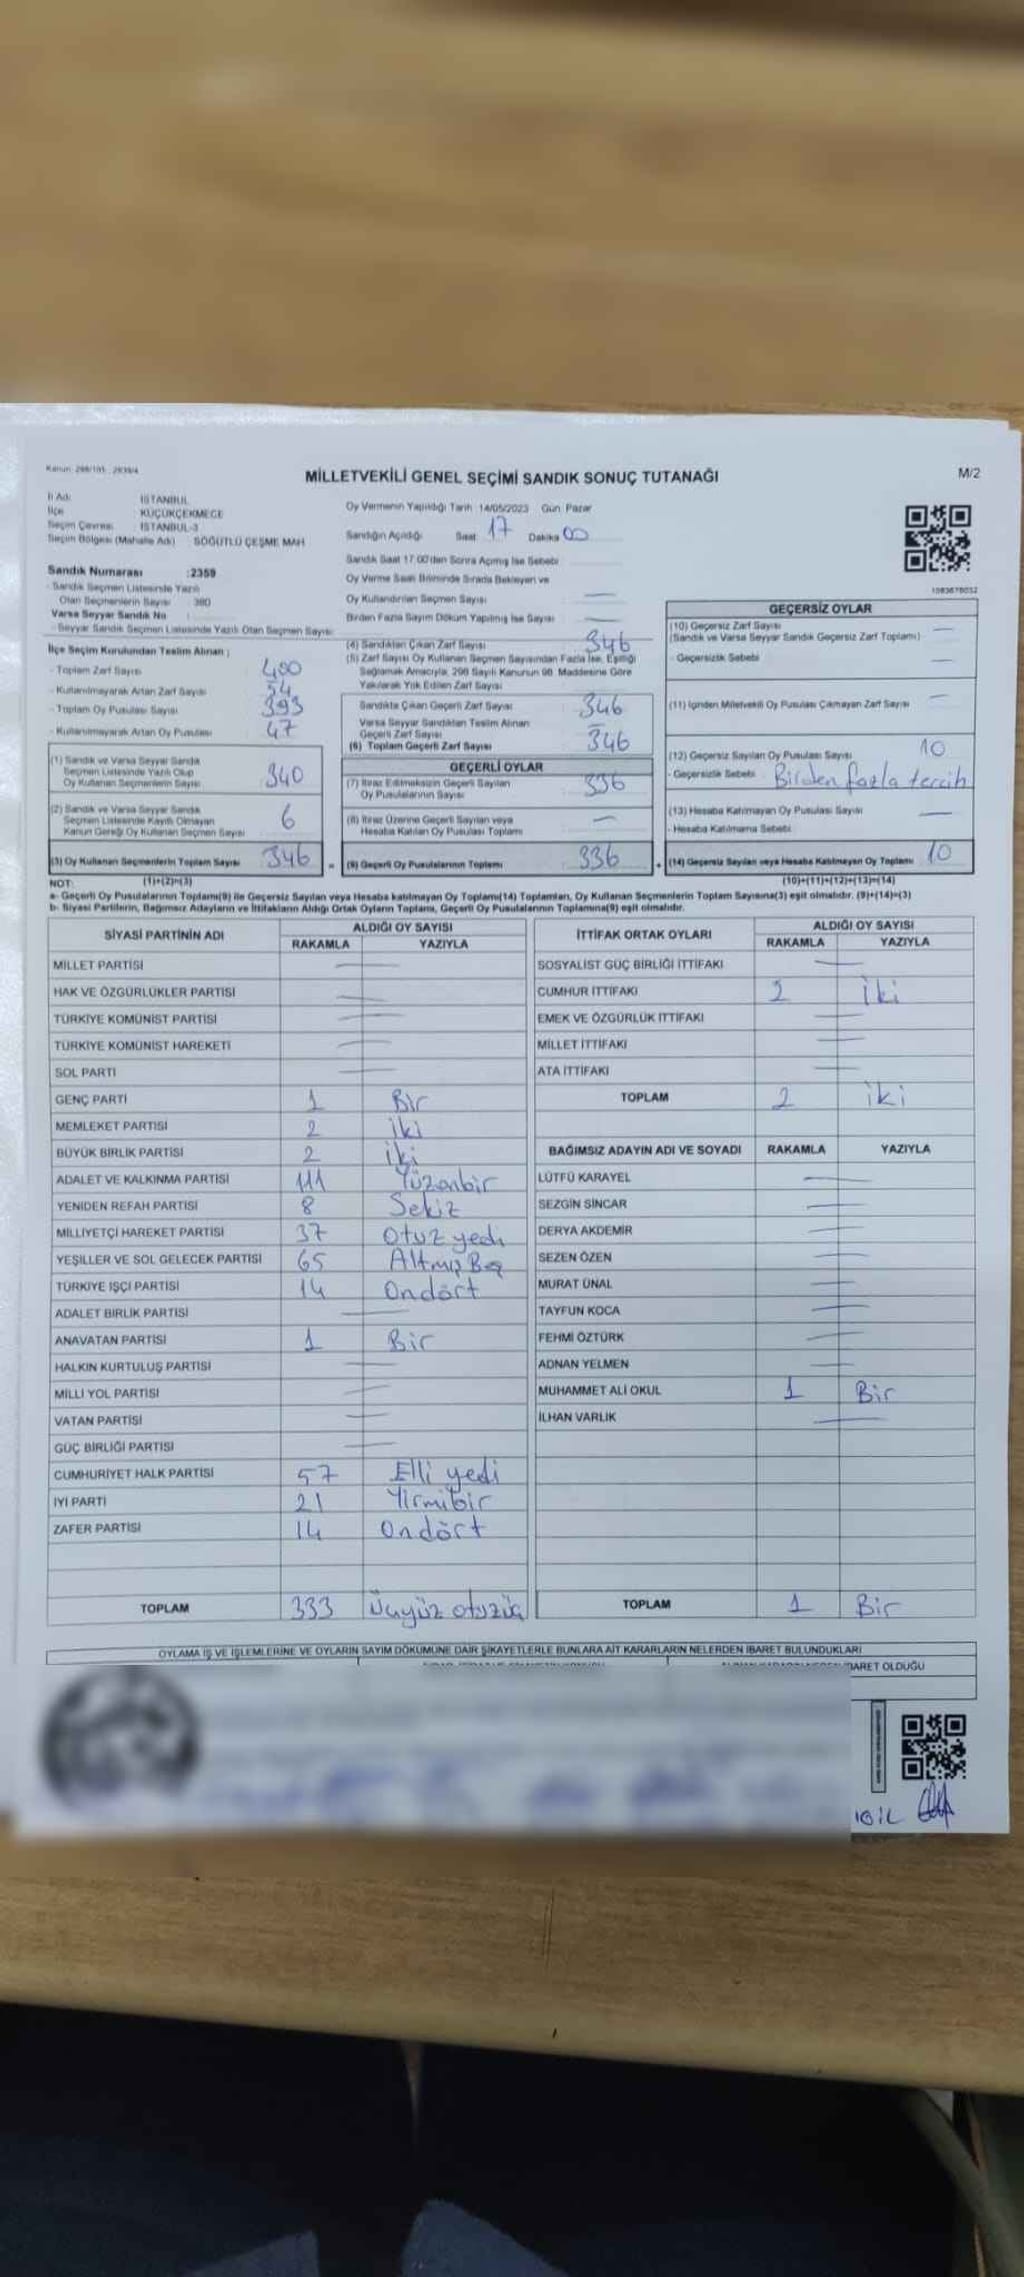 Kanun: 298/105 , 2839/4
MİLLETVEKİLİ GENEL SEÇİMİ SANDIK SONUÇ TUTANAĞI
M/2
İl Adı: İSTANBUL
İlçe KÜÇÜKÇEKMECE
Seçim Çevresi: İSTANBUL-3
Seçim Bölgesi (Mahalle Adı) SÖĞÜTLÜ ÇEŞME MAH
Oy Vermenin Yapıldığı Tarih 14/05/2023 Gün Pazar
Sandığın Açıldığı Saat 17 Dakika 00
Sandık Saat 17:00'den Sonra Açılmış İse Sebebi
Oy Verme Saati Bitiminde Sırada Bekleyen ve
Oy Kullandırılan Seçmen Sayısı —
Birden Fazla Sayım Döküm Yapılmış İse Sayısı —
Sandık Numarası :2359
- Sandık Seçmen Listesinde Yazılı
Olan Seçmenlerin Sayısı 380
Varsa Seyyar Sandık No
- Seyyar Sandık Seçmen Listesinde Yazılı Olan Seçmen Sayısı
İlçe Seçim Kurulundan Teslim Alınan ;
- Toplam Zarf Sayısı 400
- Kullanılmayarak Artan Zarf Sayısı 54
- Toplam Oy Pusulası Sayısı 393
- Kullanılmayarak Artan Oy Pusulası 47
(1) Sandık ve Varsa Seyyar Sandık
Seçmen Listesinde Yazılı Olup
Oy Kullanan Seçmenlerin Sayısı 340
(2) Sandık ve Varsa Seyyar Sandık
Seçmen Listesinde Kayıtlı Olmayan
Kanun Gereği Oy Kullanan Seçmen Sayısı 6
(3) Oy Kullanan Seçmenlerin Toplam Sayısı 346 =
(4) Sandıktan Çıkan Zarf Sayısı 346
(5) Zarf Sayısı Oy Kullanan Seçmen Sayısından Fazla İse, Eşitliği
Sağlamak Amacıyla, 298 Sayılı Kanunun 98. Maddesine Göre
Yakılarak Yok Edilen Zarf Sayısı
Sandıkta Çıkan Geçerli Zarf Sayısı 346
Varsa Seyyar Sandıktan Teslim Alınan
Geçerli Zarf Sayısı —
(6) Toplam Geçerli Zarf Sayısı 346
GEÇERLİ OYLAR
(7) İtiraz Edilmeksizin Geçerli Sayılan
Oy Pusulalarının Sayısı 336
(8) İtiraz Üzerine Geçerli Sayılan veya
Hesaba Katılan Oy Pusulası Toplamı —
(9) Geçerli Oy Pusulalarının Toplamı 336 +
1083678032
GEÇERSİZ OYLAR
(10) Geçersiz Zarf Sayısı —
(Sandık ve Varsa Seyyar Sandık Geçersiz Zarf Toplamı)
- Geçersizlik Sebebi —
(11) İçinden Milletvekili Oy Pusulası Çıkmayan Zarf Sayısı —
(12) Geçersiz Sayılan Oy Pusulası Sayısı 10
- Geçersizlik Sebebi Birden fazla tercih
(13) Hesaba Katılmayan Oy Pusulası Sayısı —
- Hesaba Katılmama Sebebi
(14) Geçersiz Sayılan veya Hesaba Katılmayan Oy Toplamı 10
NOT: (1)+(2)=(3) (10)+(11)+(12)+(13)=(14)
a- Geçerli Oy Pusulalarının Toplamı(9) ile Geçersiz Sayılan veya Hesaba katılmayan Oy Toplamı(14) Toplamları, Oy Kullanan Seçmenlerin Toplam Sayısına(3) eşit olmalıdır. (9)+(14)=(3)
b- Siyasi Partilerin, Bağımsız Adayların ve İttifakların Aldığı Ortak Oyların Toplamı, Geçerli Oy Pusulalarının Toplamına(9) eşit olmalıdır.
SİYASİ PARTİNİN ADI ALDIĞI OY SAYISI
RAKAMLA YAZIYLA
MİLLET PARTİSİ —
HAK VE ÖZGÜRLÜKLER PARTİSİ —
TÜRKİYE KOMÜNİST PARTİSİ —
TÜRKİYE KOMÜNİST HAREKETİ —
SOL PARTİ —
GENÇ PARTİ 1 Bir
MEMLEKET PARTİSİ 2 iki
BÜYÜK BİRLİK PARTİSİ 2 iki
ADALET VE KALKINMA PARTİSİ 111 Yüzonbir
YENİDEN REFAH PARTİSİ 8 Sekiz
MİLLİYETÇİ HAREKET PARTİSİ 37 Otuz yedi
YEŞİLLER VE SOL GELECEK PARTİSİ 65 Altmış Beş
TÜRKİYE İŞÇİ PARTİSİ 14 Ondört
ADALET BİRLİK PARTİSİ —
ANAVATAN PARTİSİ 1 Bir
HALKIN KURTULUŞ PARTİSİ —
MİLLİ YOL PARTİSİ —
VATAN PARTİSİ —
GÜÇ BİRLİĞİ PARTİSİ —
CUMHURİYET HALK PARTİSİ 57 Elli yedi
İYİ PARTİ 21 Yirmibir
ZAFER PARTİSİ 14 Ondört
TOPLAM 333 Üçyüz otuzüç
İTTİFAK ORTAK OYLARI ALDIĞI OY SAYISI
RAKAMLA YAZIYLA
SOSYALİST GÜÇ BİRLİĞİ İTTİFAKI —
CUMHUR İTTİFAKI 2 iki
EMEK VE ÖZGÜRLÜK İTTİFAKI —
MİLLET İTTİFAKI —
ATA İTTİFAKI —
TOPLAM 2 iki
BAĞIMSIZ ADAYIN ADI VE SOYADI RAKAMLA YAZIYLA
LÜTFÜ KARAYEL —
SEZGİN SİNCAR —
DERYA AKDEMİR —
SEZEN ÖZEN —
MURAT ÜNAL —
TAYFUN KOCA —
FEHMİ ÖZTÜRK —
ADNAN YELMEN —
MUHAMMET ALİ OKUL 1 Bir
İLHAN VARLIK —
TOPLAM 1 Bir
OYLAMA İŞ VE İŞLEMLERİNE VE OYLARIN SAYIM DÖKÜMÜNE DAİR ŞİKAYETLERLE BUNLARA AİT KARARLARIN NELERDEN İBARET BULUNDUKLARI
İBARET OLDUĞU